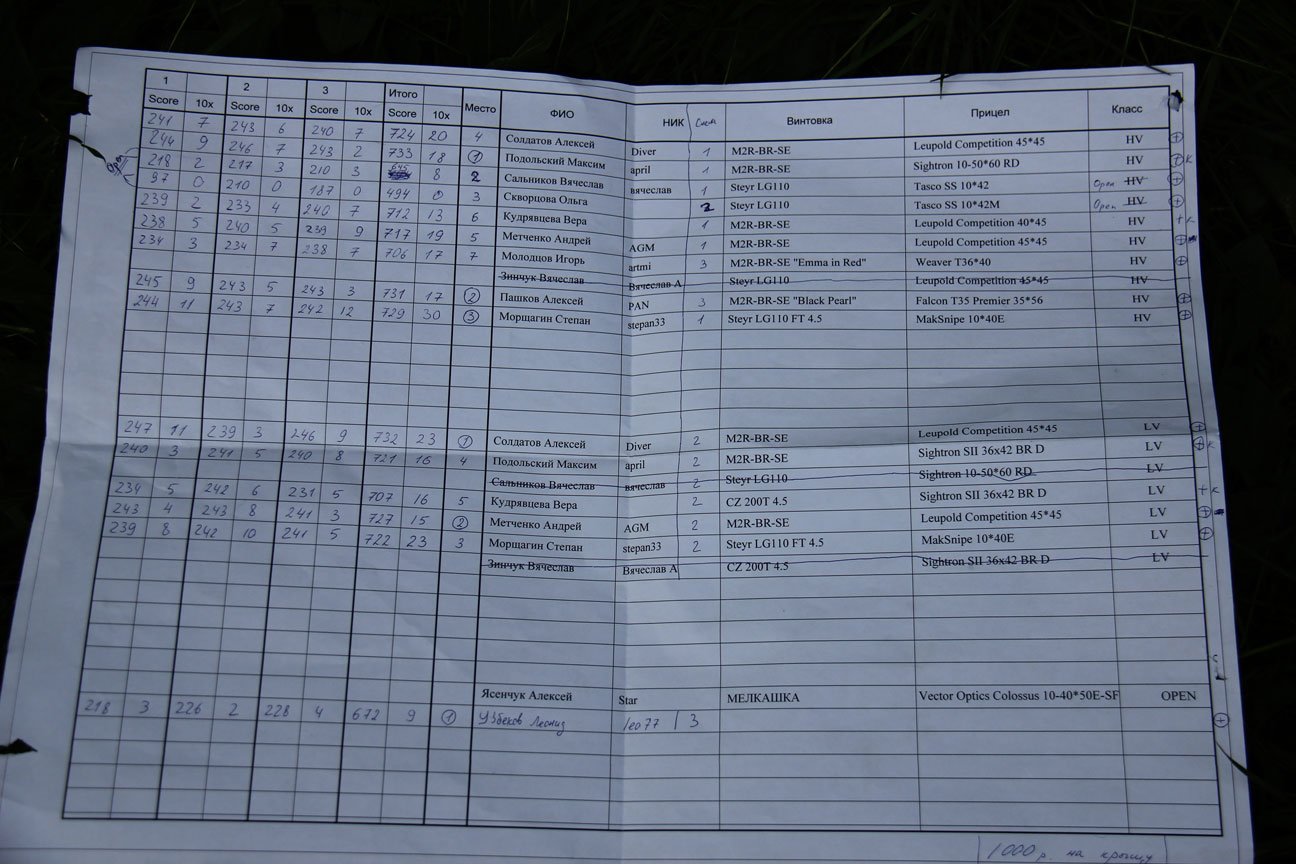 1 2 3 Итого
Score 10x Score 10x Score 10x Score 10x Место ФИО НИК Смена Винтовка Прицел Класс
241 7 243 6 240 7 724 20 4 Солдатов Алексей Diver 1 M2R-BR-SE Leupold Competition 45*45 HV
244 9 246 7 243 2 733 18 1 Подольский Максим april 1 M2R-BR-SE Sightron 10-50*60 RD HV K
218 2 217 3 210 3 645 8 2 Сальников Вячеслав вячеслав 1 Steyr LG110 Tasco SS 10*42 Open HV
97 0 210 0 187 0 494 0 3 Скворцова Ольга 2 Steyr LG110 Tasco SS 10*42M Open HV
239 2 233 4 240 7 712 13 6 Кудрявцева Вера 1 M2R-BR-SE Leupold Competition 40*45 HV + K
238 5 240 5 239 9 717 19 5 Метченко Андрей AGM 1 M2R-BR-SE Leupold Competition 45*45 HV
234 3 234 7 238 7 706 17 7 Молодцов Игорь artmi 3 M2R-BR-SE "Emma in Red" Weaver T36*40 HV
Зинчук Вячеслав Вячеслав А Steyr LG110 Leupold Competition 45*45 HV
245 9 243 5 243 3 731 17 2 Пашков Алексей PAN 3 M2R-BR-SE "Black Pearl" Falcon T35 Premier 35*56 HV
244 11 243 7 242 12 729 30 3 Морщагин Степан stepan33 1 Steyr LG110 FT 4.5 MakSnipe 10*40E HV
247 11 239 3 246 9 732 23 1 Солдатов Алексей Diver 2 M2R-BR-SE Leupold Competition 45*45 LV
240 3 241 5 240 8 721 16 4 Подольский Максим april 2 M2R-BR-SE Sightron SII 36x42 BR D LV K
Сальников Вячеслав вячеслав 2 Steyr LG110 Sightron 10-50*60 RD LV
234 5 242 6 231 5 707 16 5 Кудрявцева Вера 2 CZ 200T 4.5 Sightron SII 36x42 BR D LV + K
243 4 243 8 241 3 727 15 2 Метченко Андрей AGM 2 M2R-BR-SE Leupold Competition 45*45 LV
239 8 242 10 241 5 722 23 3 Морщагин Степан stepan33 2 Steyr LG110 FT 4.5 MakSnipe 10*40E LV
Зинчук Вячеслав Вячеслав А CZ 200T 4.5 Sightron SII 36x42 BR D LV
Ясенчук Алексей Star МЕЛКАШКА Vector Optics Colossus 10-40*50E-SF OPEN
218 3 226 2 228 4 672 9 1 Узбеков Леонид leo77 3
1000 р. на крышу